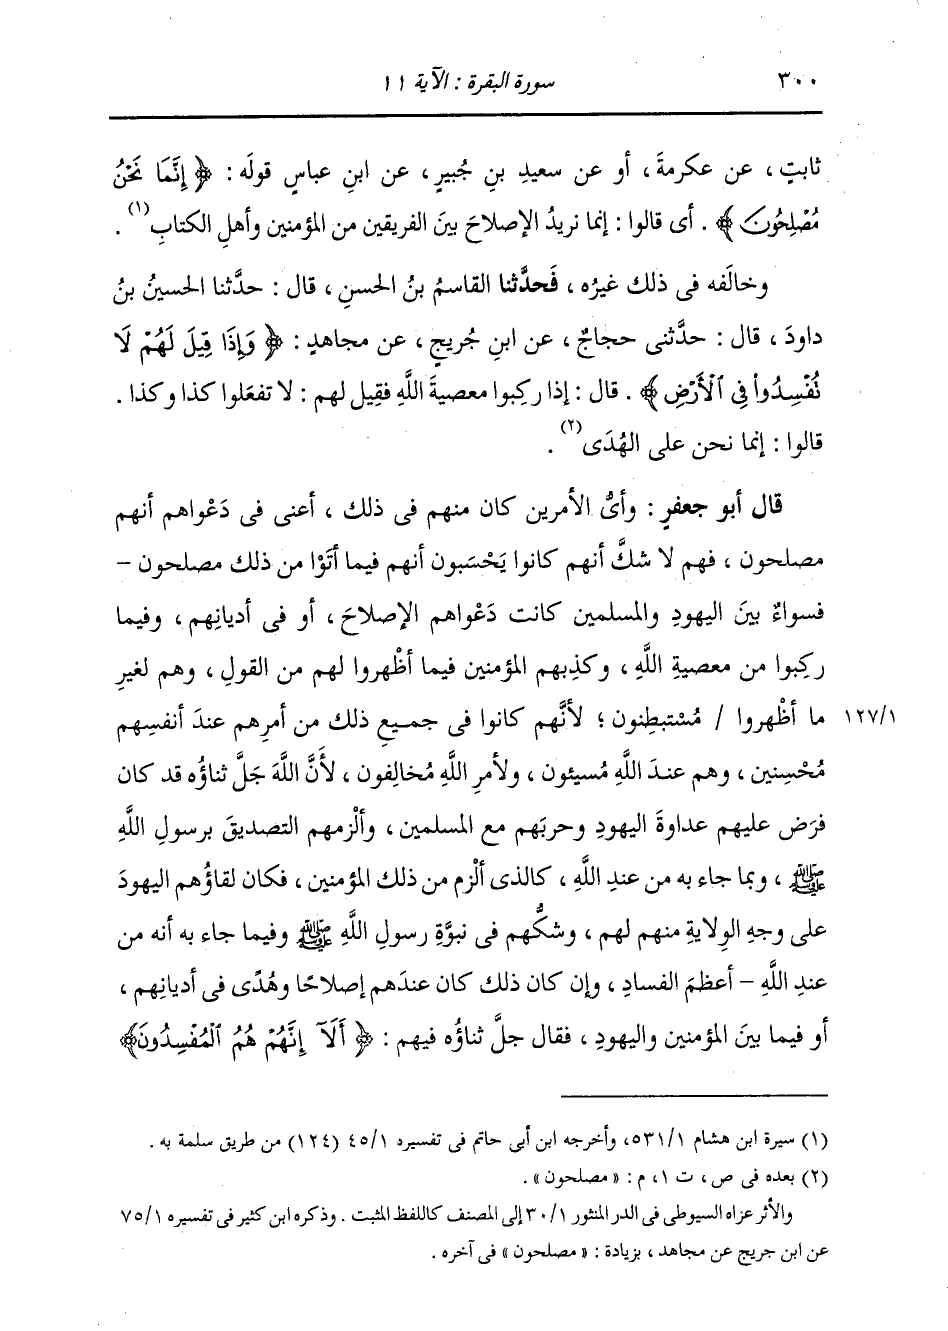 ٣٠٠
سورة البقرة : الآية ١١
ثابتٍ ، عن عكرمةَ ، أو عن سعيدِ بنِ جُبيرٍ ، عن ابنِ عباسٍ قولَه : ﴿ إِنَّمَا نَحْنُ
مُصْلِحُونَ ﴾ . أى قالوا : إنما نريدُ الإصلاحَ بينَ الفريقين من المؤمنين وأهلِ الكتابِ(١) .
وخالَفه فى ذلك غيرُه ، فَحدَّثنا القاسمُ بنُ الحسنِ ، قال : حدَّثنا الحسينُ بنُ
داودَ ، قال : حدَّثنى حجاجٌ ، عن ابنِ جُريجٍ ، عن مجاهدٍ : ﴿ وَإِذَا قِيلَ لَهُمْ لَا
تُفْسِدُواْ فِى ٱلْأَرْضِ ﴾ . قال : إذا ركِبوا معصيةَ اللَّهِ فقيل لهم : لا تفعَلوا كذا وكذا .
قالوا : إنما نحن على الهُدَى(٢) .
قال أبو جعفرٍ : وأىُّ الأمرين كان منهم فى ذلك ، أعنى فى دَعْواهم أنهم
مصلحون ، فهم لا شكَّ أنهم كانوا يَحْسَبون أنهم فيما أتَوْا من ذلك مصلحون –
فسواءٌ بينَ اليهودِ والمسلمين كانت دَعْواهم الإصلاحَ ، أو فى أديانِهم ، وفيما
ركِبوا من معصيةِ اللَّهِ ، وكذِبهم المؤمنين فيما أظْهروا لهم من القولِ ، وهم لغيرِ
١٢٧/١ ما أظْهروا / مُسْتبطِنون ؛ لأنَّهم كانوا فى جميعِ ذلك من أمرِهم عندَ أنفسِهم
مُحْسِنين ، وهم عندَ اللَّهِ مُسيئون ، ولأمرِ اللَّهِ مُخالِفون ، لأنَّ اللَّهَ جَلَّ ثناؤُه قد كان
فرَض عليهم عداوةَ اليهودِ وحربَهم مع المسلمين ، وألْزمهم التصديقَ برسولِ اللَّهِ
ﷺ ، وبما جاء به من عندِ اللَّهِ ، كالذى ألْزم من ذلك المؤمنين ، فكان لقاؤُهم اليهودَ
على وجهِ الوِلايةِ منهم لهم ، وشكُّهم فى نبوَّةِ رسولِ اللَّهِ ﷺ وفيما جاء به أنه من
عندِ اللَّهِ – أعظمَ الفسادِ ، وإن كان ذلك كان عندَهم إصلاحًا وهُدًى فى أديانِهم ،
أو فيما بينَ المؤمنين واليهودِ ، فقال جلَّ ثناؤُه فيهم : ﴿ أَلَآ إِنَّهُمْ هُمُ ٱلْمُفْسِدُونَ﴾
(١) سيرة ابن هشام ٥٣١/١، وأخرجه ابن أبى حاتم فى تفسيره ٤٥/١ (١٢٤) من طريق سلمة به .
(٢) بعده فى ص ، ت ١، م : « مصلحون» .
والأثر عزاه السيوطى فى الدر المنثور ٣٠/١ إلى المصنف كاللفظ المثبت . وذكره ابن كثير فى تفسيره ٧٥/١
عن ابن جريج عن مجاهد ، بزيادة : « مصلحون » فى آخره .